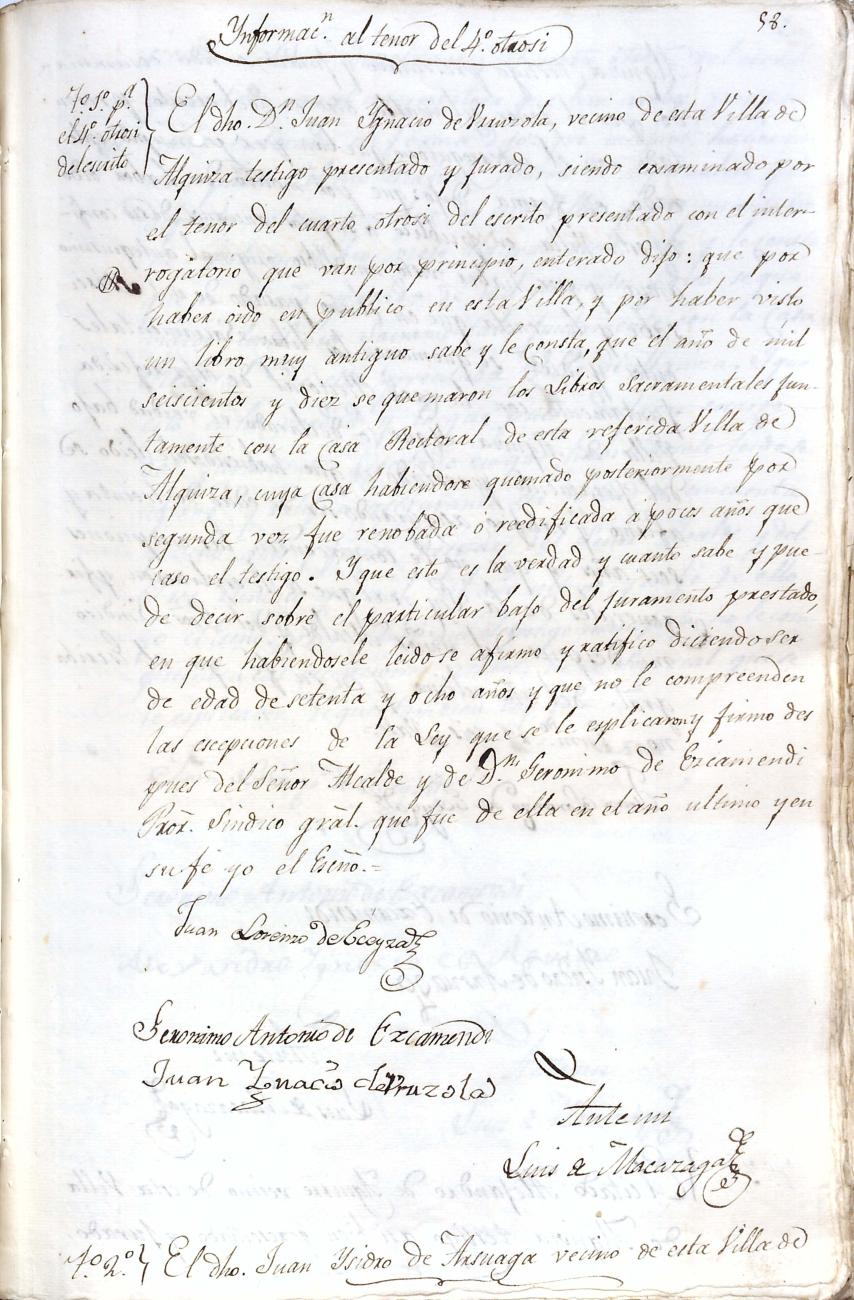 58.
Ynformac.n al tenor del 4.º otrosi
T.º 1.º p.a
el 4.º otrosi
del escrito
El dho. D.n Juan Ygnacio de Vruzola, vecino de esta Villa de
Alquiza testigo presentado y jurado, siendo exsaminado por
el tenor del cuarto otrosi del escrito presentado con el inter-
rogatorio que van por principio, enterado dijo: que por
haber oido en publico en esta Villa, y por haber visto
un libro muy antiguo sabe y le consta, que el año de mil
seiscientos y diez se quemaron los Libros Sacramentales jun-
tamente con la Casa Rectoral de esta referida Villa de
Alquiza, cuya Casa habiendose quemado posteriormente por
segunda vez fue renobada ó reedificada á pocos años que
caso el testigo. Y que esto es la verdad y cuanto sabe y pue-
de decir sobre el particular bajo del juramento prestado,
en que habiendosele leido se afirmo y ratifico diciendo ser
de edad de setenta y ocho años y que no le compreenden
las escepciones de la Ley que se le esplicaron y firmo des
pues del Señor Alcalde y de D.n Geronimo de Ezcamendi
Pror. Sindico gral. que fue de ella en el año ultimo y en
su fé yo el Esno.=
Juan Lorenzo de Eceyza
Geronimo Antonio de Ezcamendi
Juan Ygnacio de Vruzola
Ante mi
Luis de Macazaga
T.º 2.º
El dho. Juan Ysidro de Arsuaga vecino de esta Villa de